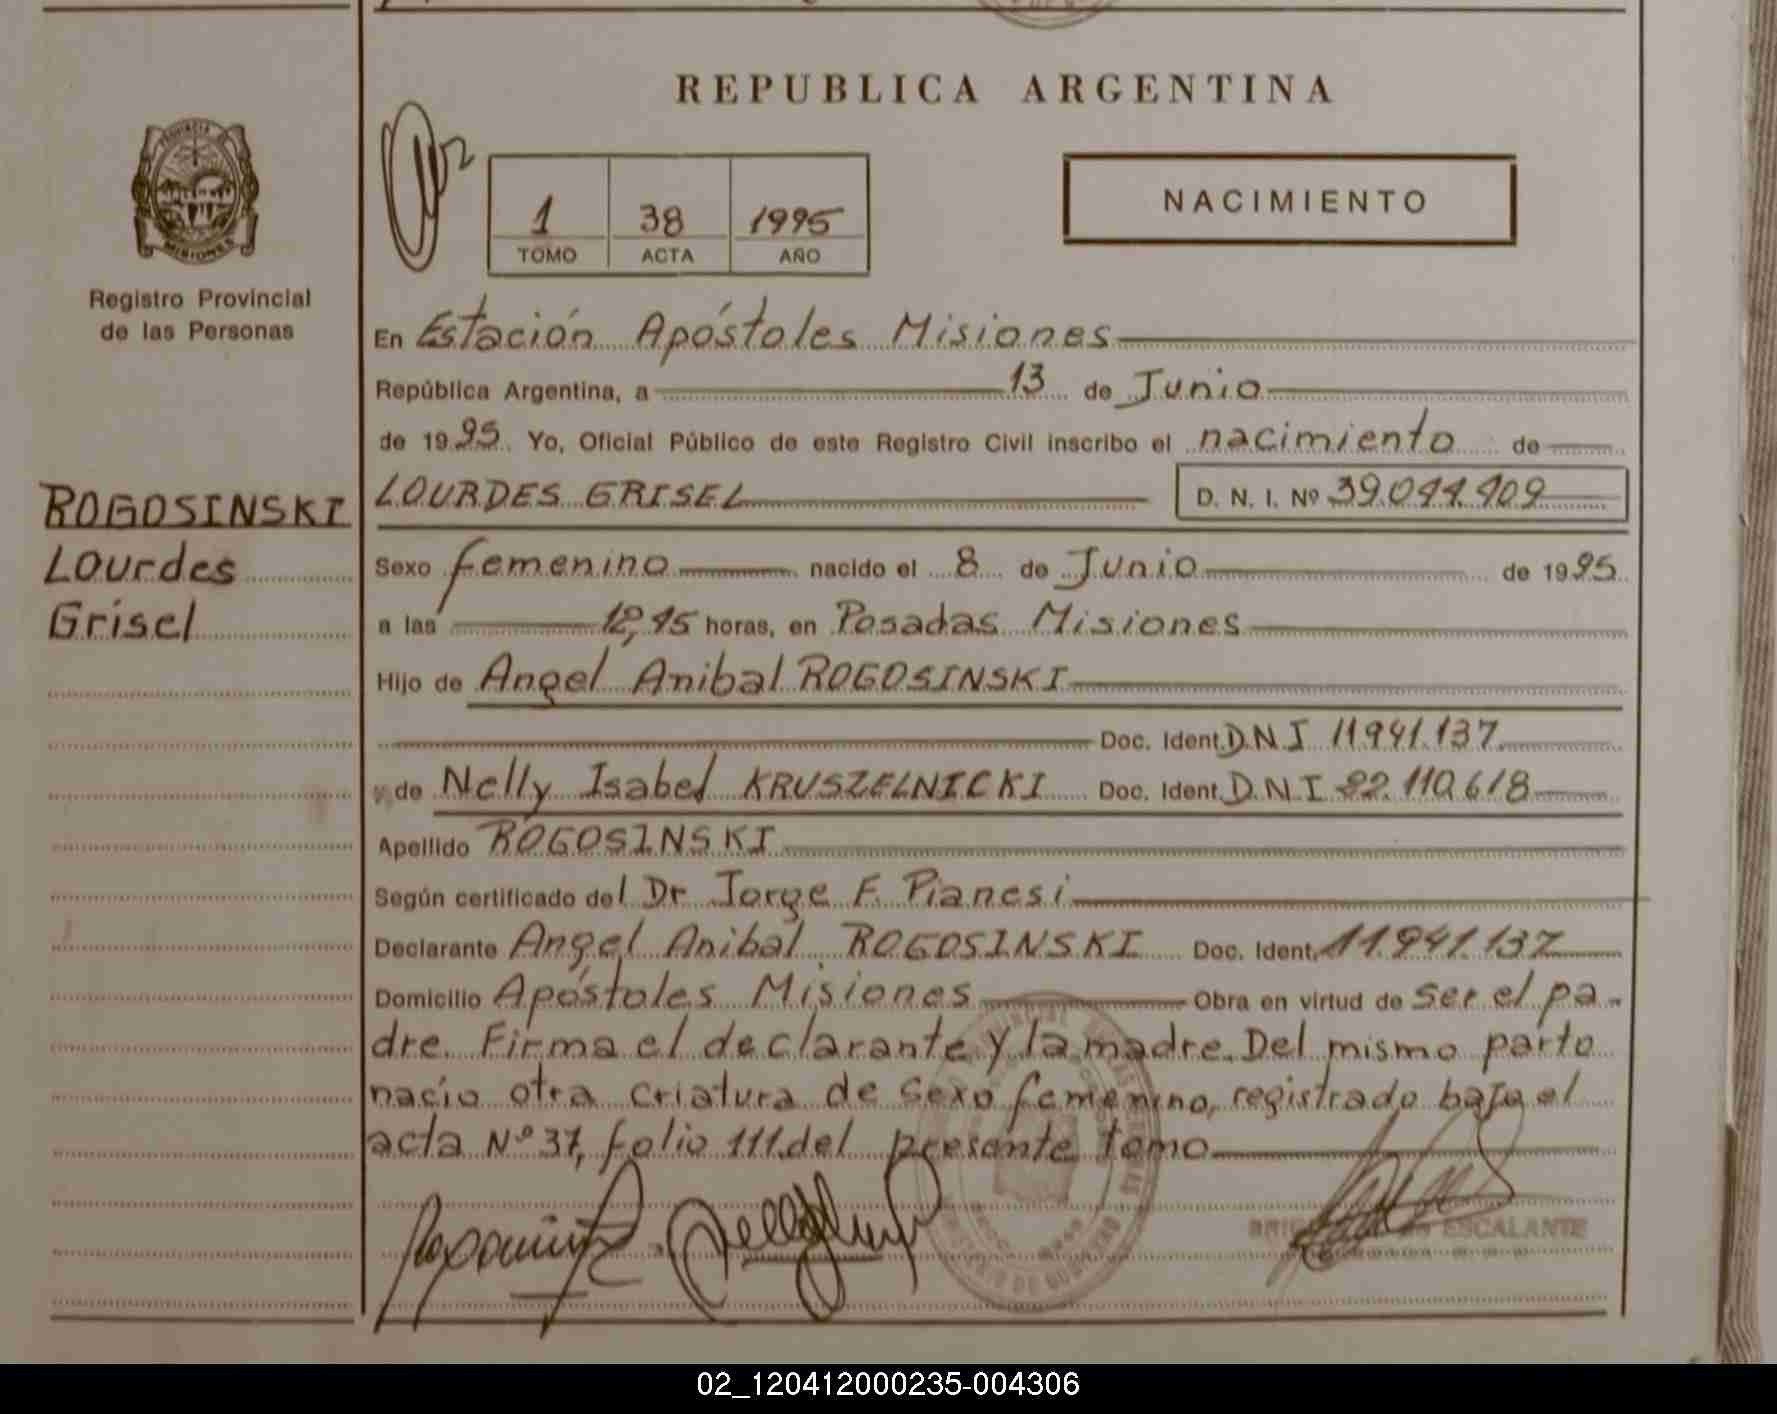 REPUBLICA ARGENTINA
NACIMIENTO
1 38 1995
TOMO ACTA AÑO
PROVINCIA DE
MISIONES
Registro Provincial
de las Personas
ROGOSINSKI
Lourdes
Grisel
En Estación Apóstoles Misiones
República Argentina, a 13 de Junio
de 1995 Yo, Oficial Público de este Registro Civil inscribo el nacimiento de
LOURDES GRISEL D. N. I. Nº
Sexo femenino nacido el 8 de Junio de 1995
a las horas, en Posadas Misiones
Hijo de Angel Anibal ROGOSINSKI
Doc. Ident. DNI 11941.137
y de Nelly Isabel KRUSZELNICKI Doc. Ident. DNI 22.110.618
Apellido ROGOSINSKI
Según certificado del Dr Jorge F. Pianesi
Declarante Angel Anibal ROGOSINSKI Doc. Ident. 11.941.137
Domicilio Apóstoles Misiones Obra en virtud de ser el pa-
dre. Firma el declarante y la madre. Del mismo parto
nacio otra criatura de sexo femenino, registrado bajo el
acta Nº 37, folio 111 del presente tomo
ESCALANTE
02_120412000235-004306